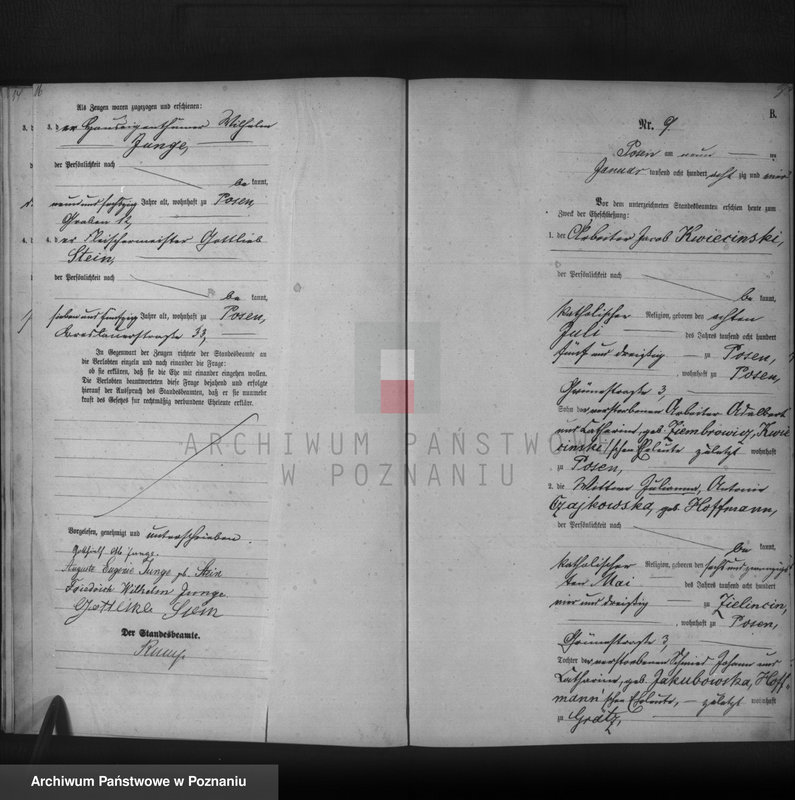 Als Zeugen waren zugezogen und erschienen:
3. der Hauseigenthümer Wilhelm
Junge,
der Persönlichkeit nach
be kannt,
neunundsechzig Jahre alt, wohnhaft zu Posen,
Graben 12,
4. der Fleischermeister Gottlieb
Stein,
der Persönlichkeit nach
be kannt,
sieben und fünfzig Jahre alt, wohnhaft zu Posen,
Breslauerstraße 33,
In Gegenwart der Zeugen richtete der Standesbeamte an
die Verlobten einzeln und nach einander die Frage:
ob sie erklären, daß sie die Ehe mit einander eingehen wollen.
Die Verlobten beantworteten diese Frage bejahend und erfolgte
hierauf der Ausspruch des Standesbeamten, daß er sie nunmehr
kraft des Gesetzes für rechtmäßig verbundene Eheleute erkläre.
Vorgelesen, genehmigt und unterschrieben.
Otto Junge.
Auguste Eugenie Junge geb. Stein
Friedrich Wilhelm Junge.
Gottlieb Stein
Der Standesbeamte.
B.
Nr. 9
Posen am neun ten
Januar tausend acht hundert acht zig und vier
Vor dem unterzeichneten Standesbeamten erschien heute zum
Zweck der Eheschließung:
1. der Arbeiter Jacob Kwiecinski,
der Persönlichkeit nach
be kannt,
katholischer Religion, geboren den achten
Juli des Jahres tausend acht hundert
fünf und dreißig zu Posen,
, wohnhaft zu Posen,
Grünestraße 3,
Sohn der verstorbenen Arbeiter Adalbert
und Catharina, geb. Ziembrowicz, Kwie
cinski'schen Eheleute zuletzt wohnhaft
zu Posen,
2. die Wittwe Julianna, Antonie
Czajkowska, geb. Hoffmann,
der Persönlichkeit nach
be kannt,
katholischer Religion, geboren den sechsundzwanzigs
ten Mai des Jahres tausend acht hundert
vier und dreißig zu Zielincin,
, wohnhaft zu Posen,
Grünestraße 3,
Tochter der verstorbenen Schmied Johann und
Catharina, geb. Jakubowska, Hoff-
mann'schen Eheleute, zuletzt wohnhaft
zu Grätz,
ARCHIWUM PAŃSTWOWE
W POZNANIU
Archiwum Państwowe w Poznaniu